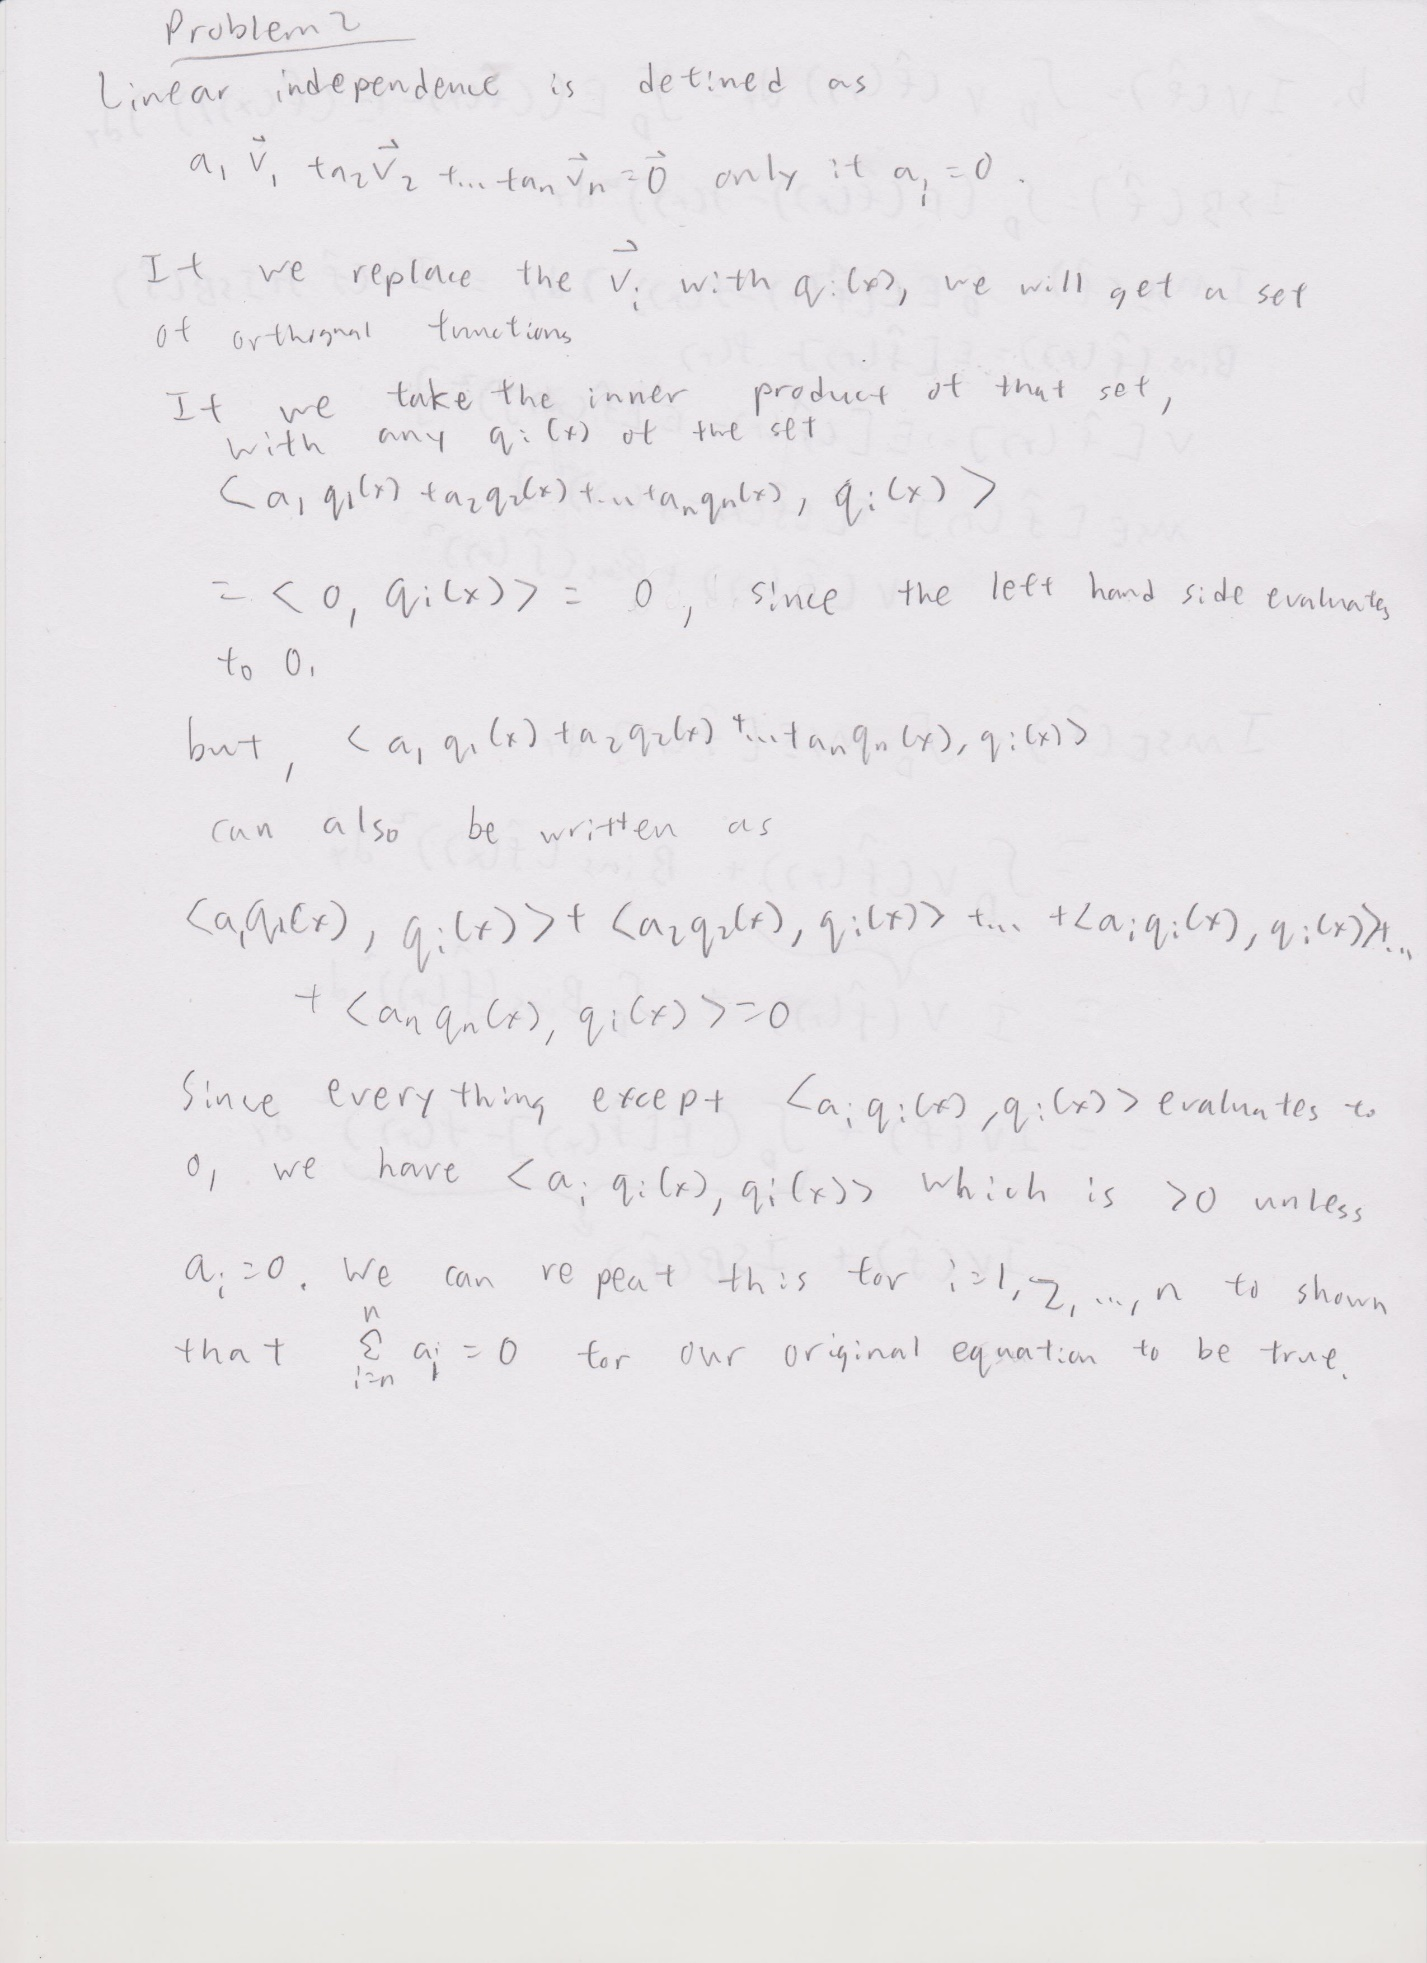 Problem 2
Linear independence is defined as
a₁ v⃗₁ + a₂ v⃗₂ + ... + aₙ v⃗ₙ = 0⃗ only if aᵢ = 0.
If we replace the v⃗ᵢ with qᵢ(x), we will get a set
of orthognal functions
If we take the inner product of that set,
with any qᵢ(x) of the set
<a₁ q₁(x) + a₂q₂(x) + ... + aₙqₙ(x), qᵢ(x)>
= <0, qᵢ(x)> = 0, since the left hand side evaluates
to 0.
but, <a₁ q₁(x) + a₂q₂(x) + ... + aₙqₙ(x), qᵢ(x)>
can also be written as
<a₁q₁(x), qᵢ(x)> + <a₂q₂(x), qᵢ(x)> + ... + <aᵢqᵢ(x), qᵢ(x)> + ...
+ <aₙqₙ(x), qᵢ(x)> = 0
Since everything except <aᵢqᵢ(x), qᵢ(x)> evaluates to
0, we have <aᵢ qᵢ(x), qᵢ(x)> which is >0 unless
aᵢ = 0. We can repeat this for i=1, 2, ..., n to shown
that Σᵢ₌ₙⁿ aᵢ = 0 for our original equation to be true.